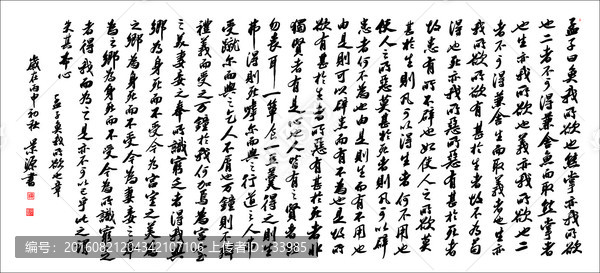 孟子曰魚我所欲也熊掌亦我所欲
也二者不可得兼舍魚而取熊掌者
也生亦我所欲也義亦我所欲也二
者不可得兼舍生而取義者也生亦
我所欲所欲有甚於生者故不為苟
得也死亦我所惡所惡有甚於死者
故患有所不辟也如使人之所欲莫
甚於生則凡可以得生者何不用也
使人之所惡莫甚於死者則凡可以辟
患者何不為也由是則生而有不用也
由是則可以辟患而有不為也是故所
欲有甚於生者所惡有甚於死者非
獨賢者有是心也人皆有之賢者能
勿喪耳一簞食一豆羹得之則生
弗得則死嘑爾而與之行道之人弗
受蹴爾而與之乞人不屑也万鐘則不辨
禮義而受之万鐘於我何加焉為宮室
之美妻妾之奉所識窮乏者得我與
鄉為身死而不受今為宮室之美為
之鄉為身死而不受今為妻妾之奉
為之鄉為身死而不受今為所識窮乏
者得我而為之是亦不可以已乎此之謂
失其本心
孟子魚我所欲也章
歲在丙申初秋 景源書
编号：20160821204342107106 上传者ID：33985